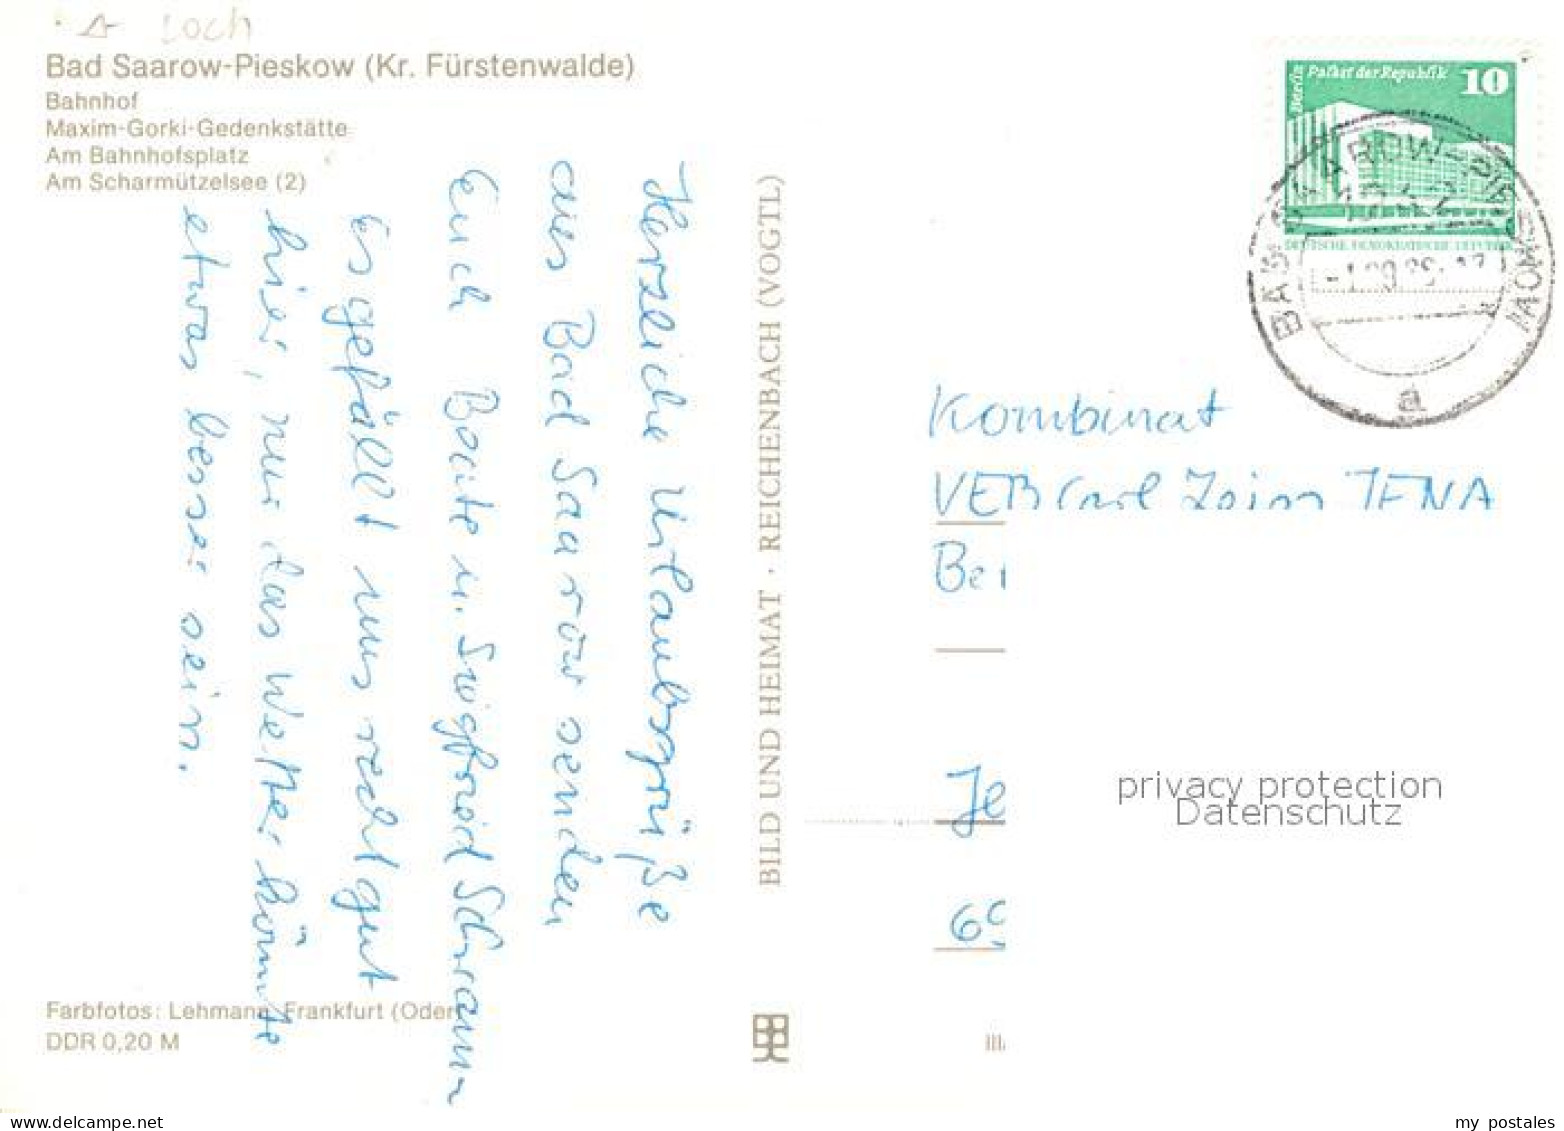 Loch
Bad Saarow-Pieskow (Kr. Fürstenwalde)
Bahnhof
Maxim-Gorki-Gedenkstätte
Am Bahnhofsplatz
Am Scharmützelsee (2)
Herzliche Urlaubsgrüße
aus Bad Saarow senden
Euch Beate u. Siegfried Schramm
Es gefällt uns recht gut
hier, nur das Wetter könnte
etwas besser sein.
Farbfotos: Lehmann, Frankfurt (Oder)
DDR 0,20 M
BILD UND HEIMAT · REICHENBACH (VOGTL)
Berlin
Palast der Republik
10
DEUTSCHE DEMOKRATISCHE REPUBLIK
BAD SAAROW-PIESKOW
1242
a
Kombinat
VEB Carl Zeiss JENA
Je
privacy protection
Datenschutz
www.delcampe.net
my postales